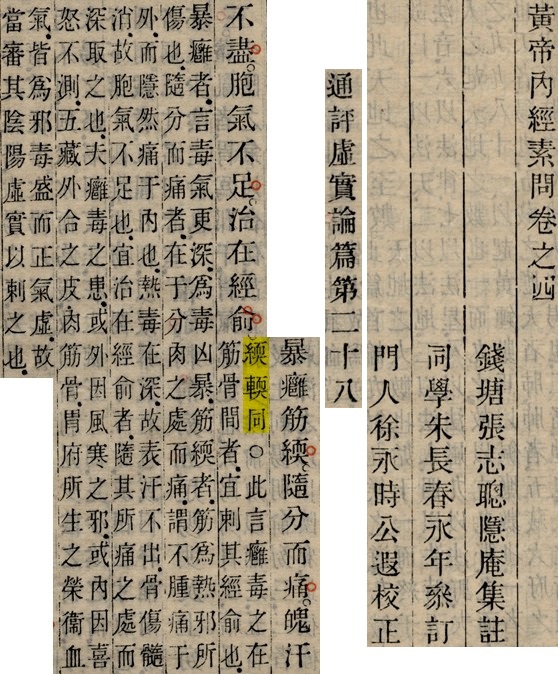 黃帝內經素問卷之四
錢塘張志聰隱庵集註
同學朱長春永年叅訂
門人徐永時公遐校正
通評虛實論篇第二十八
暴癰筋緛。隨分而痛。魄汗
不盡。胞氣不足。治在經俞。緛輭同○此言癰毒之在
筋骨間者。宜刺其經俞也。
暴癰者。言毒氣更深。爲毒凶暴。筋緛者。筋爲熱邪所
傷也。隨分而痛者。在于分肉之處而痛。謂不腫痛于
外。而隱然痛于內也。熱毒在深。故表汗不出。骨傷髓
消。故胞氣不足也。宜治在經俞者。隨其所痛之處而
深取之也。夫癰毒之患。或外因風寒之邪。或內因喜
怒不測。五藏外合之皮肉筋骨。胃府所生之榮衞血
氣。皆爲邪毒盛而正氣虛。故
當審其陰陽虛實以刺之也。